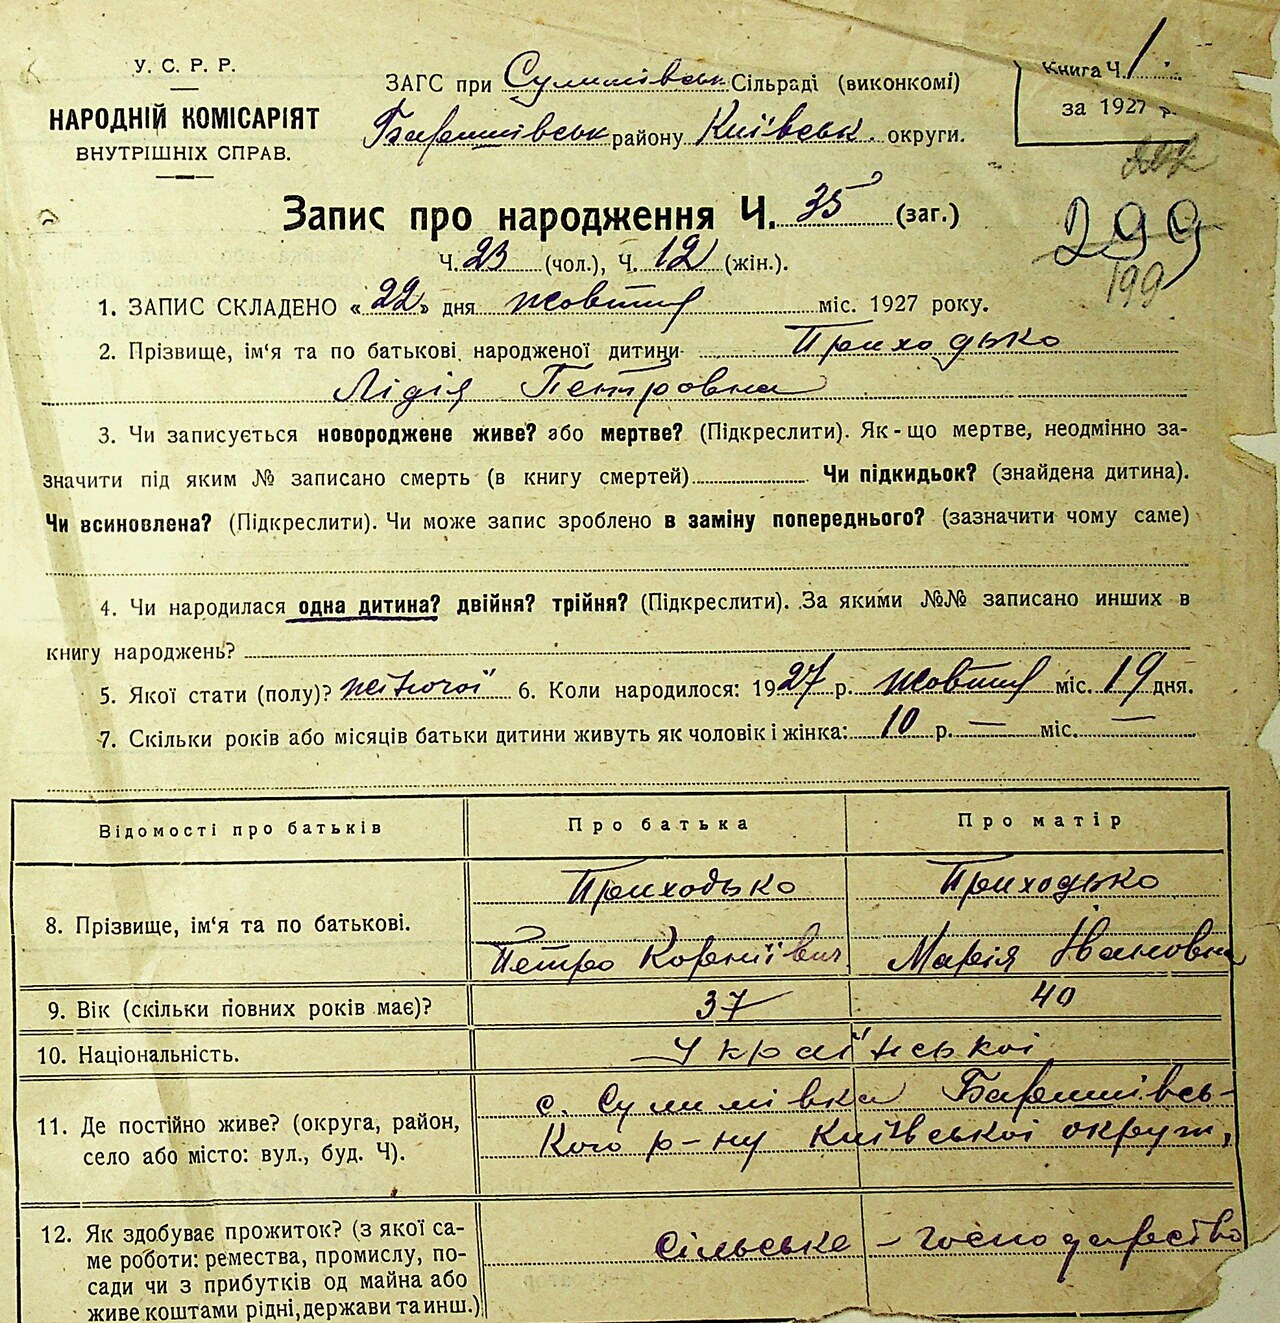 У. С. Р. Р.
НАРОДНІЙ КОМІСАРІЯТ
ВНУТРІШНІХ СПРАВ.
ЗАГС при Сулимівськ. Сільраді (виконкомі)
Баришівськ району Київськ. округи.
Книга Ч. 1
за 1927 р.
Запис про народження Ч. 35 (заг.)
299
199
Ч. 23 (чол.), Ч. 12 (жін.).
1. ЗАПИС СКЛАДЕНО «22» дня жовтня міс. 1927 року.
2. Прізвище, ім‘я та по батькові народженої дитини Приходько
Лідія Петровна
3. Чи записується новороджене живе? або мертве? (Підкреслити). Як-що мертве, неодмінно за-
значити під яким № записано смерть (в книгу смертей) Чи підкидьок? (знайдена дитина).
Чи всиновлена? (Підкреслити). Чи може запис зроблено в заміну попереднього? (зазначити чому саме)
4. Чи народилася одна дитина? двійня? трійня? (Підкреслити). За якими №№ записано инших в
книгу народжень?
5. Якої стати (полу)? жіночої 6. Коли народилося: 1927 р. жовтня міс. 19 дня.
7. Скільки років або місяців батьки дитини живуть як чоловік і жінка: 10 р. — міс. —
Відомості про батьків Про батька Про матір
8. Прізвище, ім‘я та по батькові. Приходько Приходько
Петро Корніївич Марія Івановна
9. Вік (скільки повних років має)? 37 40
10. Національність. Української
11. Де постійно живе? (округа, район,
село або місто: вул., буд. Ч).
с. Сулимівка Баришівсь-
кого р-ну Київської округи,
12. Як здобуває прожиток? (з якої са-
ме роботи: ремества, промислу, по-
сади чи з прибутків од майна або
живе коштами рідні, держави та инш.)
Сільське-господарство